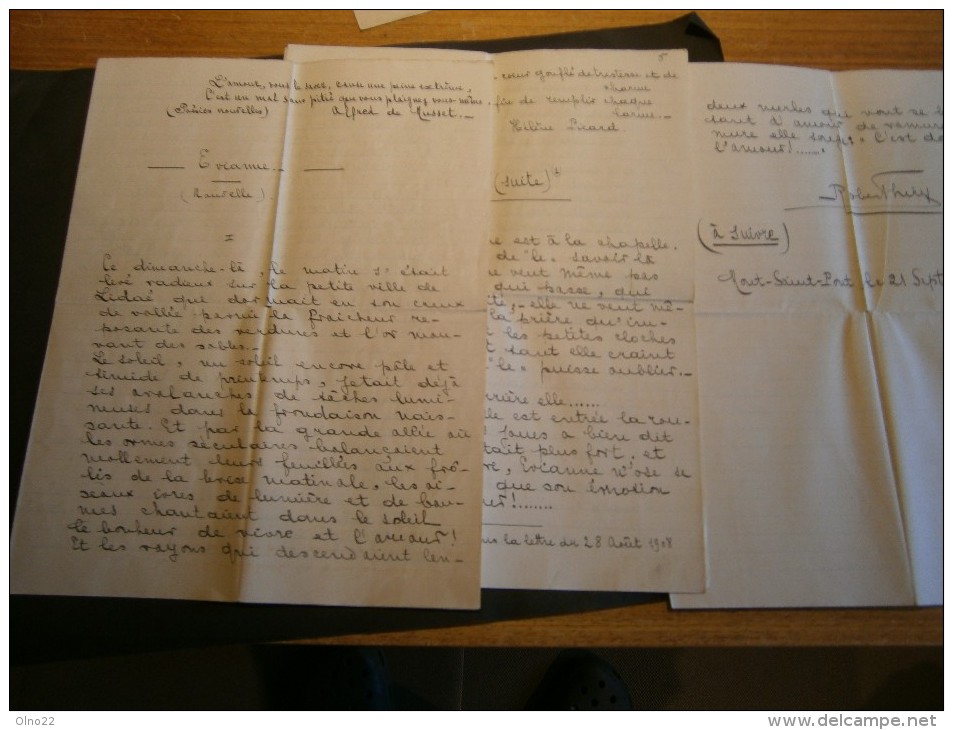 L'amour, vous le savez, cause une peine extrême,
C'est un mal sans pitié que vous plaignez vous-même.
(Poésies nouvelles) Alfred de Musset.
Evianne
(Nouvelle)
Ce dimanche-là, le matin s'était
levé radieux sur la petite ville de
qui dormait en son creux
de vallée la fraîcheur re-
posante des verdures et l'or mou-
vant des sables.-
Le soleil, un soleil encore pâle et
timide de printemps, jetait déjà
ses avalanches de tâches lumi-
neuses dans la frondaison nais-
sante. Et par la grande allée où
les ormes séculaires balançaient
mollement leurs feuillées aux frô-
lis de la brise matinale, les oi-
seaux ivres de lumière et de bau-
mes chantaient dans le soleil
le bonheur de vivre et l'amour!
Et les rayons qui descendaient len-
5
cœur gonflé de tristesse et de
charme
de remplir chaque
larme.-
Hélène Picard
(suite)
est à la chapelle.
de le savoir là
ne veut même pas
qui passe, qui
elle ne veut mê-
la prière qu'
les petites cloches
tant elle craint
"le" puisse oublier.-
rrière elle......
est entrée la rou-
a bien dit
tait plus fort, et
re, Evianne n'ose se
que son émotion
!......
la lettre du 28 Août 1908
deux merles qui vont se
d'amour de
mure elle C'est de
l'amour!......
(à suivre)
Mont-Saint-Pont le 21 Sept
Olno22
www.delcampe.net